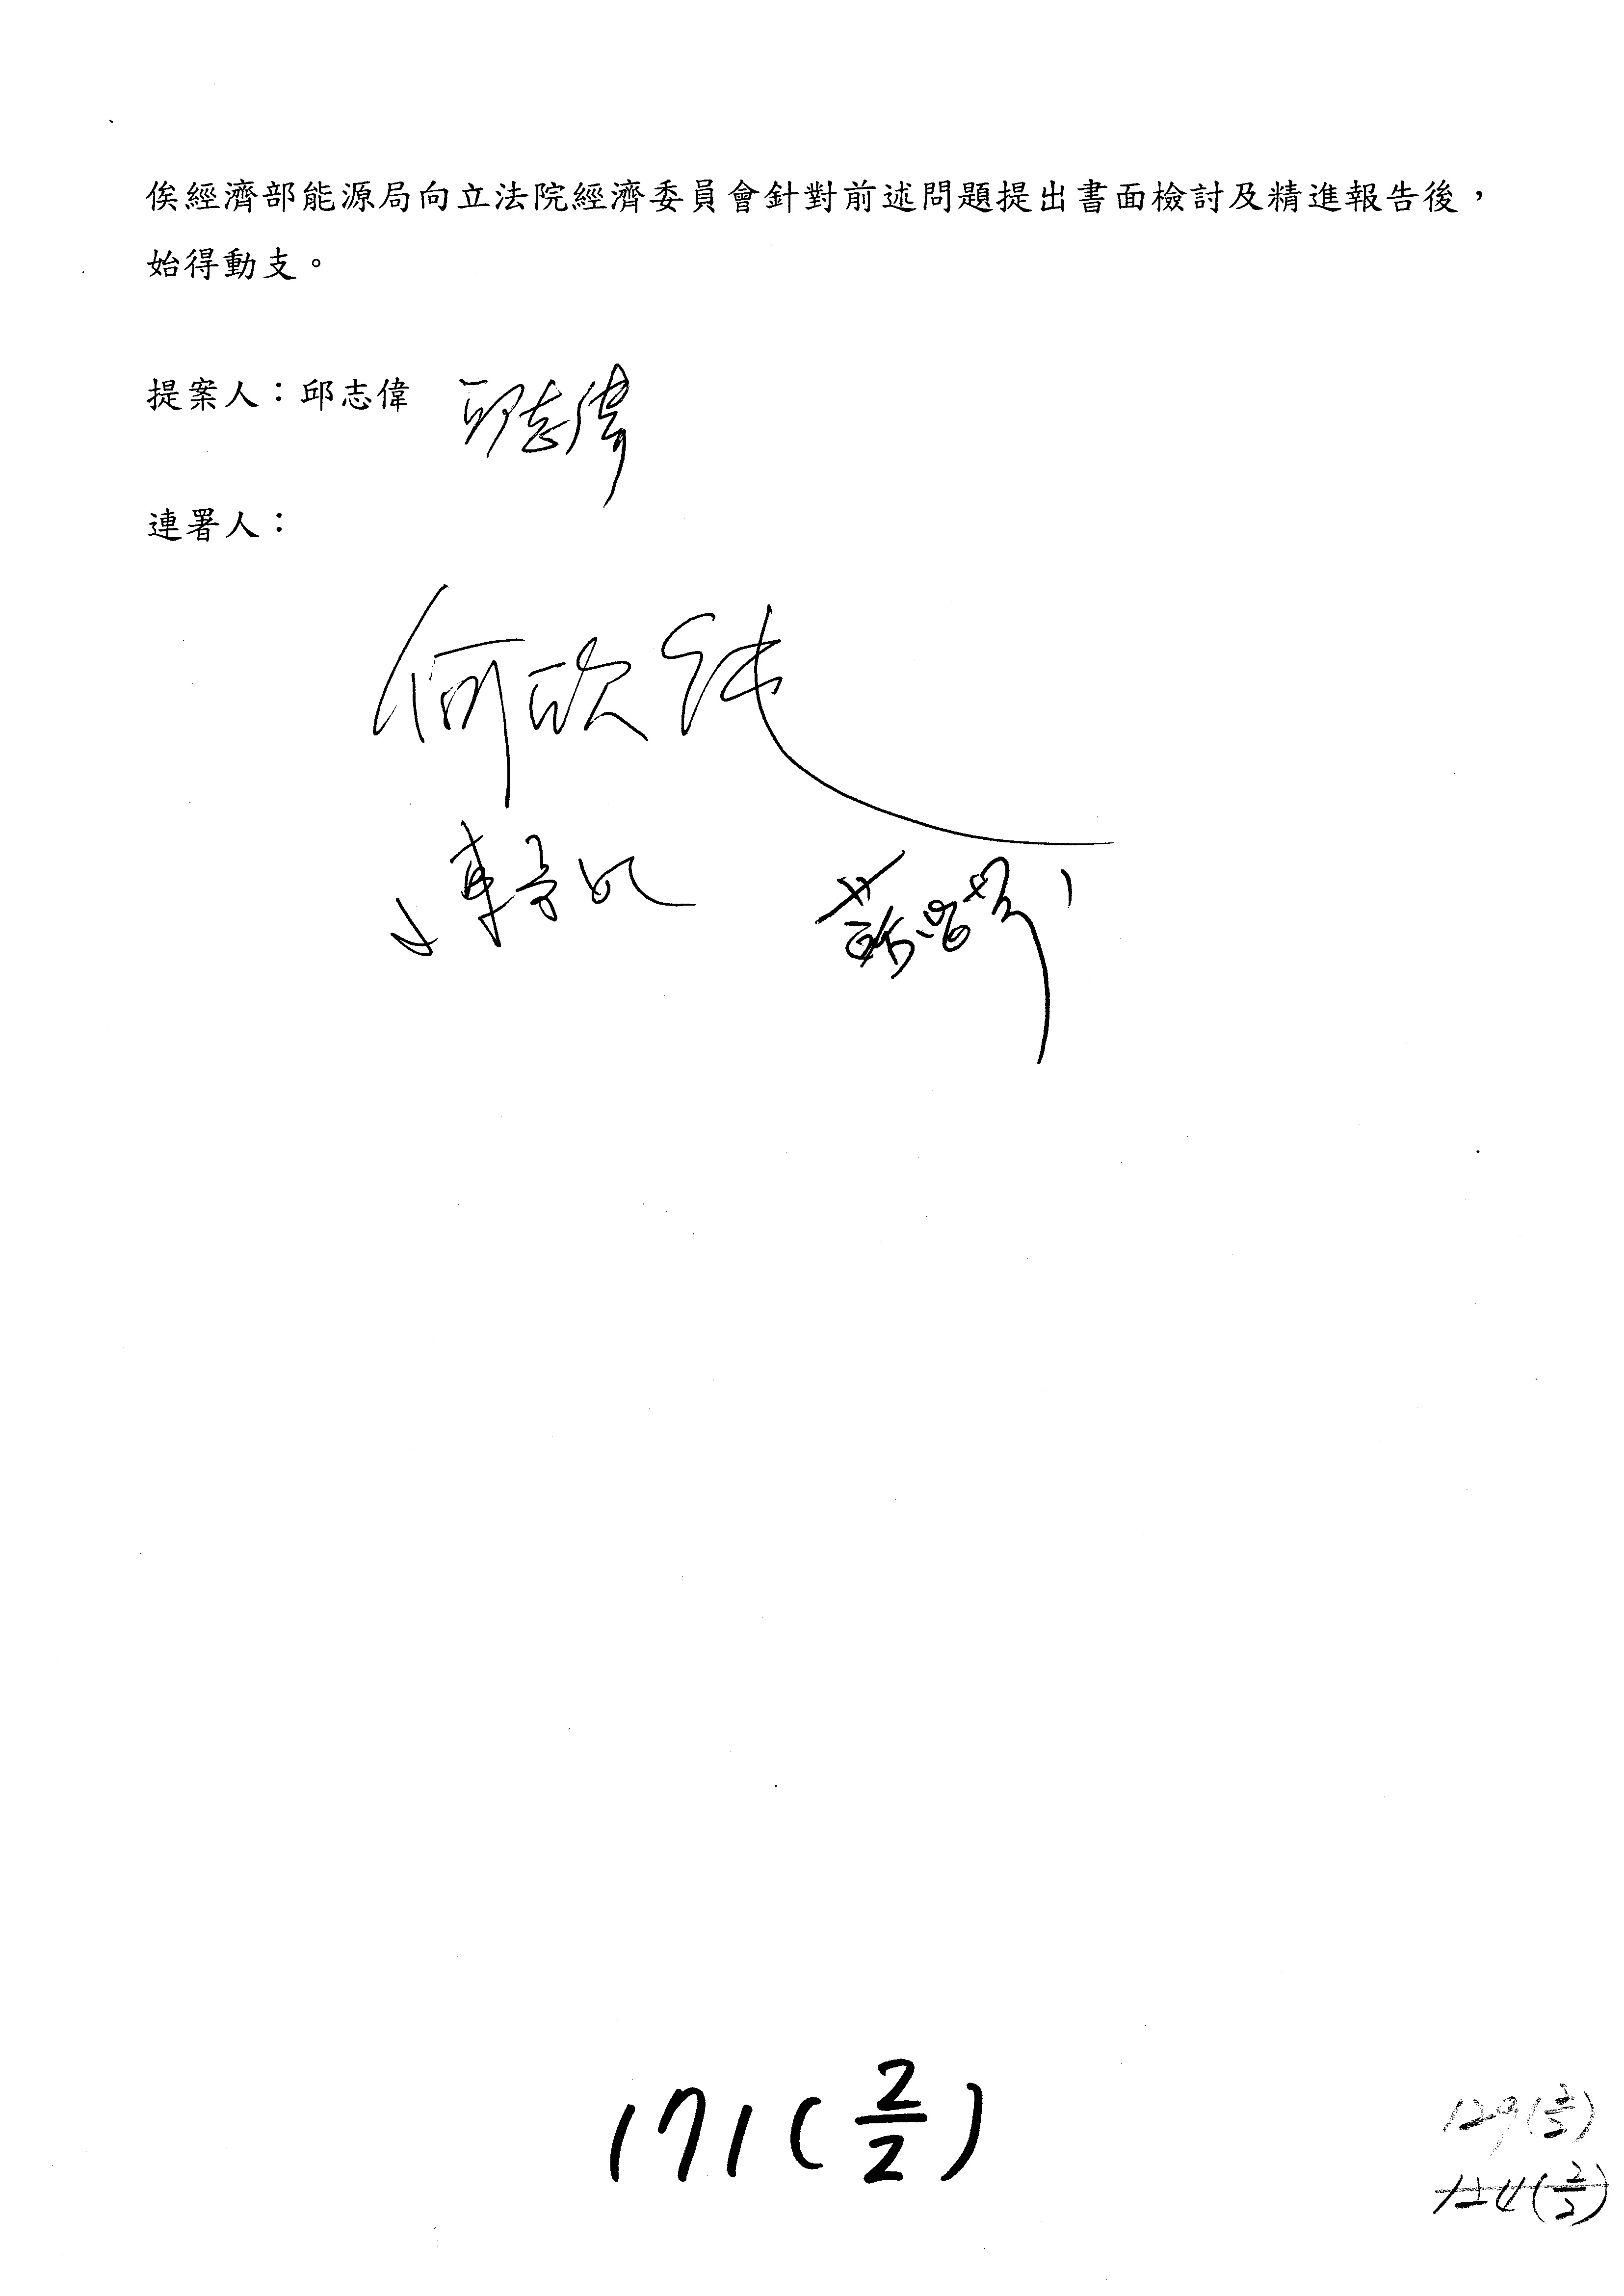 俟經濟部能源局向立法院經濟委員會針對前述問題提出書面檢討及精進報告後，
始得動支。
提案人：邱志偉 邱志偉
連署人：
何欣純
蘇治芬
171(2/2)
129(2/2)
124(2/2)